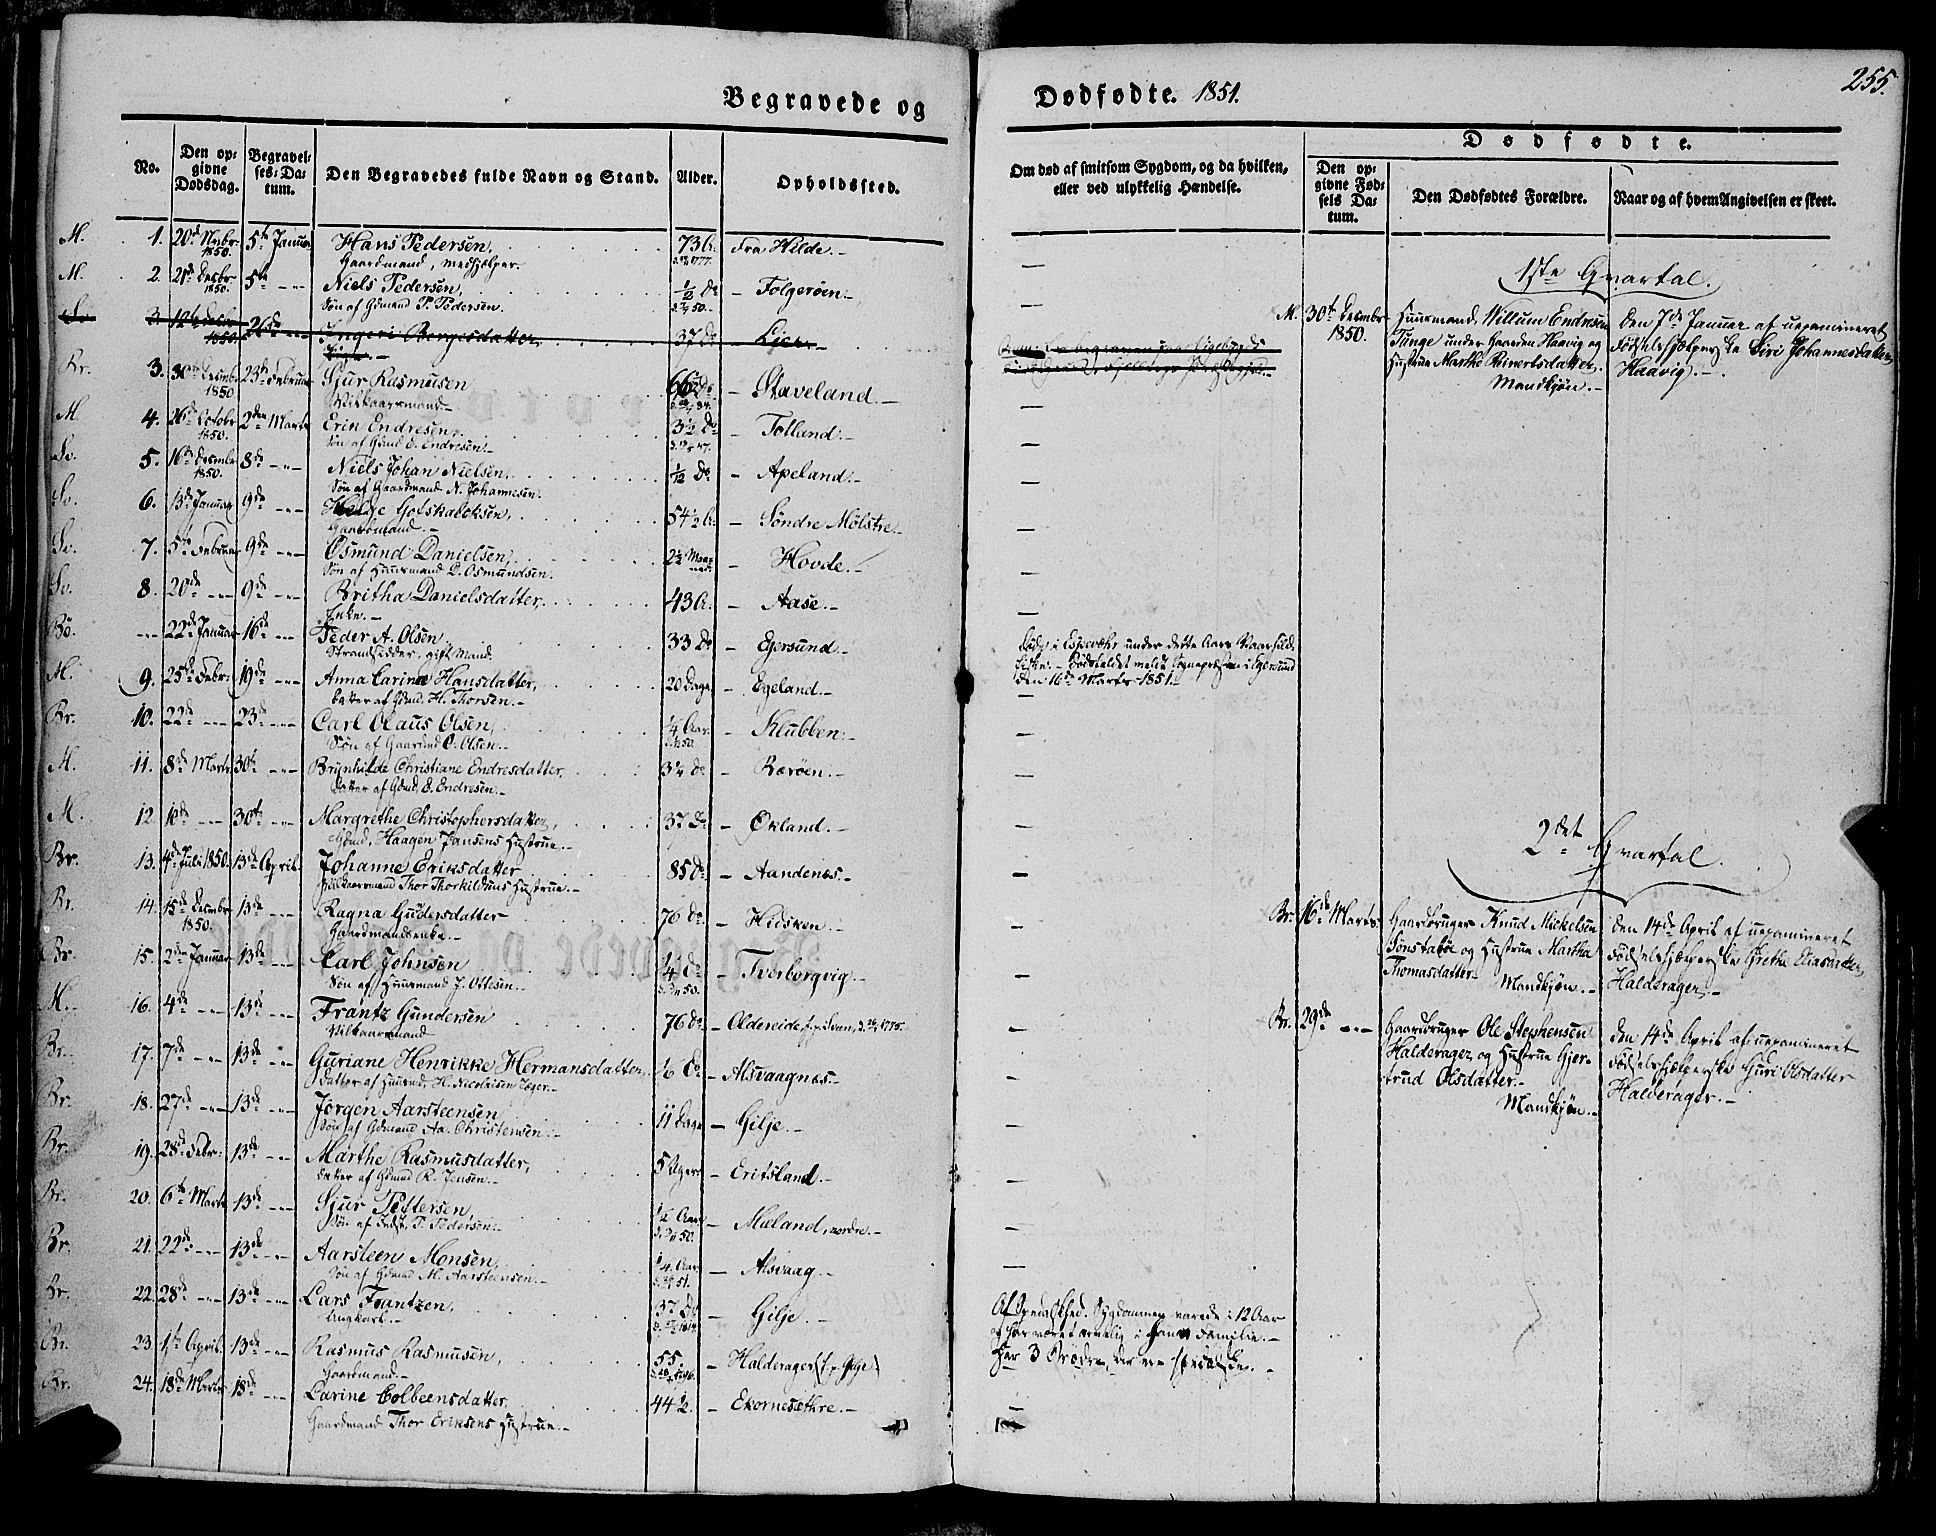 Begravede og
No.
Den op-
givne
Dødsdag.
Begravel-
ses-Da-
tum.
Den Begravedes fulde Navn og Stand.
Alder.
Opholdssted.
M. 1. 20d Novbr 1850. 5te Januar Hans Pedersen, 73 A. Fra Hilde.
Gaardmand, Medhjælper.
M. 2. 21d Decbr 1850. 5te Niels Pedersen, 1/2 do – Folgerøen.
Søn af Gdmand P. Pedersen.
37 do – Lier.
Br. 3. 30te Decmbr 1850 23de Februar Sjur Rasmusen 66 do – Staveland.
Vilkaarmand
M. 4. 26de Octobr 1850. 2den Marts Erin Endresen, 3 1/2 do – Tolland.
Søn af Gdmd E. Endresen.
Sv. 5. 16de Decmbr 1850. 8de Niels Johan Nielsen, 1/12 do – Apeland.
Søn af Gaardmand N. Johannesen.
Sv. 6. 13de Januar 9de Helge Gotskalcksen, 54 1/2 A. – Søndre Mølstre.
Gaardmand.
Sv. 7. 5te Februar 9de Osmund Danielsen, 2 1/2 – Hovde.
Søn af Huusmand D. Osmundsen.
Sv. 8. 20de 9de Britha Danielsdatter, 43 A. – Aase.
Enke.
Bø. 22de Januar 16de Peder A. Olsen 33 do – Egersund.
Strandsidder, gift Mand.
M. 9. 25de Febr. 19de Anna Carine Hansdatter, 20 Dage – Egeland.
Datter af Gdmd. H. Thorsen.
Br. 10. 22de 23de Carl Olaus Olsen, 1/4 Aar – Klubben.
Søn af Gaardmd O. Olsen.
M. 11. 8de Marts 30te Brynhilde Christiane Endresdatter, 3 1/4 do – Rørøen.
Datter af Gdmd. E. Endresen.
M. 12. 10de 30te Margrethe Christophersdatter, 37 do – Økland.
Gdmd. Haagen Jansens Hustrue.
Br. 13. 4de Juli 1850. 13de April Johanne Eriksdatter 85 do – Aandenes.
Vilkaarmand Thor Thorkildsens Hustrue.
Br. 14. 15de Decmbr 1850. 13de Ragna Gudersdatter 76 do – Hidsken.
Gaardmandsenke.
Br. 15. 2de Januar 13de Carl Johnsen 1/4 do – Tverborgvig.
Søn af Huusmand J. Ottesen.
M. 16. 4de 13de Frantz Gundersen 76 do – Oldereide
Vilkaarmand
Br. 17. 7de 13de Guriane Henrikke Hermansdatter, 1/6 do – Alsvaagnes.
Datter af Huusmd. H. Nicolaisen Jæger.
Br. 18. 27de 13de Jørgen Aarsteensen 11 Dage – Gilje.
Søn af Gdmand Aa. Christensen.
Br. 19. 28de Febr. 13de Marthe Rasmusdatter, 5 Uger – Eritsland.
Datter af Gdmd R. Jensen.
Br. 20. 6te Marts 13de Sjur Pettersen, 1/2 Aar – Mæland, nordre.
Søn af Indst. P. Pedersen.
Br. 21. 22de 13de Aarsteen Monsen, 1/4 Aar – Alsvaag.
Søn af Gdmd M. Aarsteensen.
Br. 22. 28de 13de Lars Frantzen, 37 do – Gilje.
Ungkarl.
Br. 23. 1ste April. 13de Rasmus Rasmusen, 55 – Halderager
Gaardmand.
Br. 24. 18de Marts 18de Larine Colbeensdatter, 44 1/2 – Ekornesæthre.
Gaardmand Thor Eriksens Hustrue.
Dødfødte. 1851.
255.
Om død af smitsom Sygdom, og da hvilken,
eller ved ulykkelig Hændelse.
Dødfødte.
Den op-
givne Fød-
sels Da-
tum.
Den Dødfødtes Forældre.
Naar og af hvem Angivelsen er skeet.
Døde i Espevær under dette Aars Vaarsild-
fiske. – Dødsfaldet meldt Sognepræsten i Egersund
den 16de Marts 1851.
Af Spedalskhed. Sygdommen varede i 12 Aar
og har været arvelig i hans Familie.
Har 3 Brødre, der ere spedalske.
1ste Qvartal.
M. 30te Decmbr 1850.
Huusmand Willum Endresen
Tunge under Gaarden Haavig og
Hustrue Marthe Reinertsdatter.
Mandkjøn.
Den 7de Januar af uexamineret
Fødselshjælperske Siri Johannesdatter
Haavig.
2det Qvartal.
Br. 16de Marts.
Gaardbruger Knud Mickelsen
Sønstabøe og Hustrue Martha
Thomasdatter. Mandkjøn.
Den 14de April af uexamineret
Fødselshjælperske Grethe Eliasdatter,
Halderager.
Br. 29de
Gaardbruger Ole Stephensen
Halderager og Hustrue Gjer-
trud Olsdatter.
Mandkjøn.
Den 14de April af uexamineret
Fødselshjælperske Guri Olsdatter
Halderager.